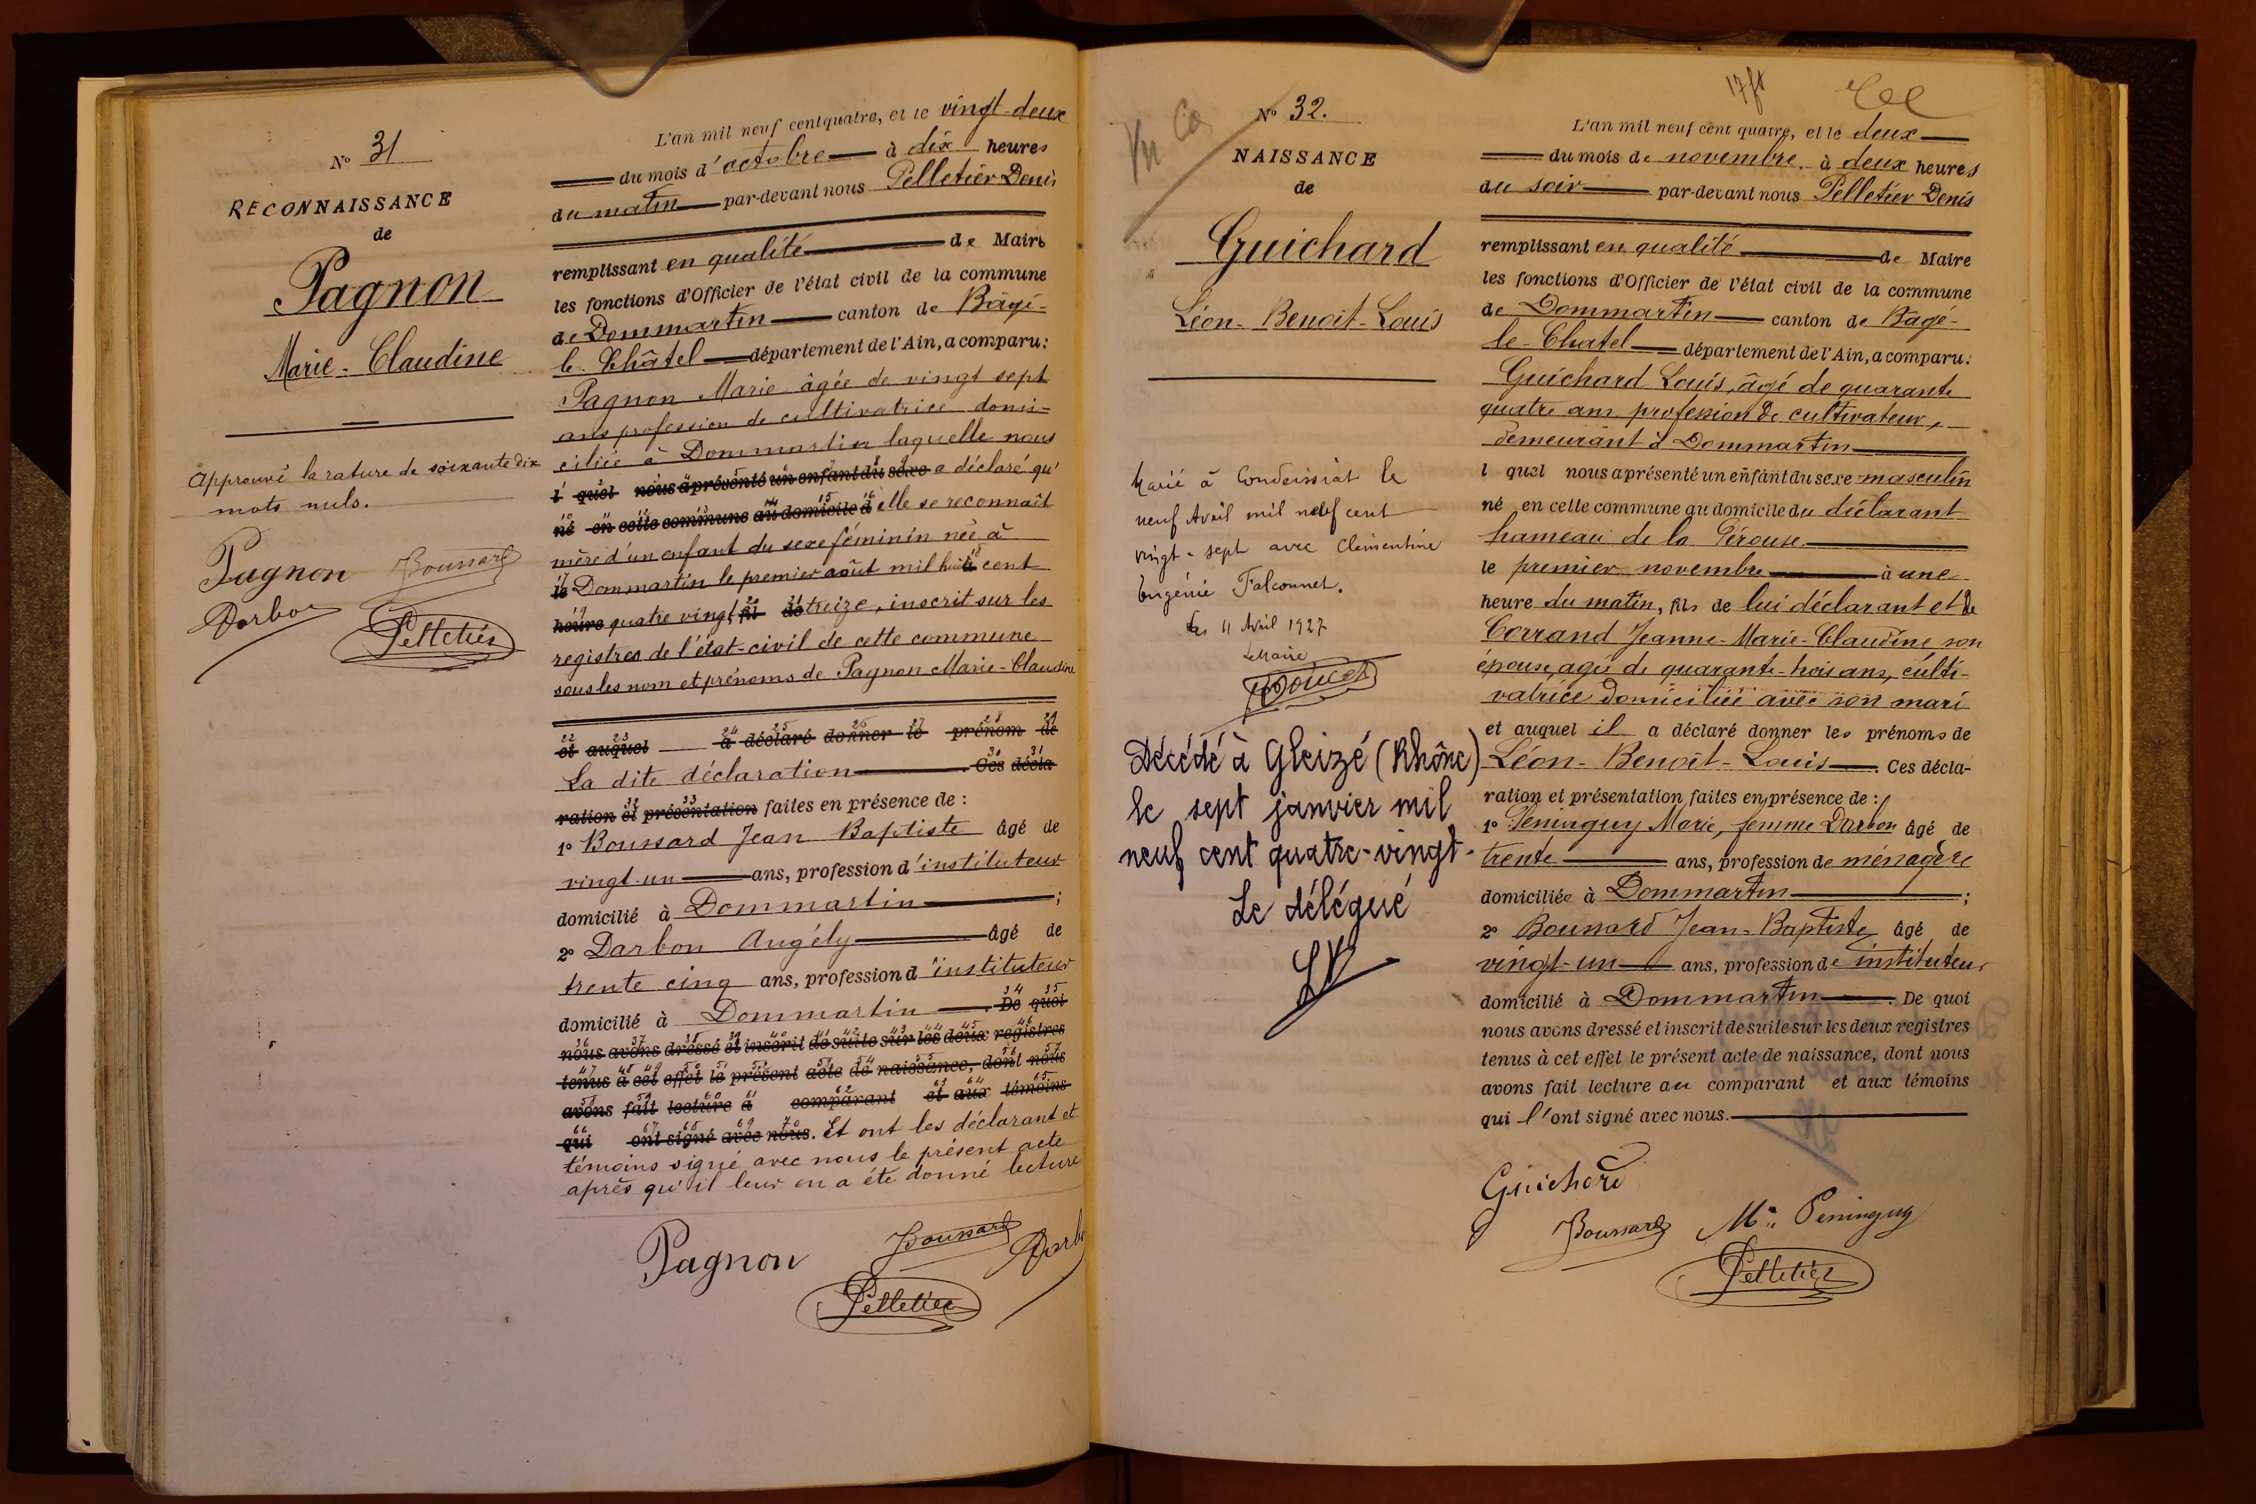 Nº 31
RECONNAISSANCE
de
Pagnon
Marie-Claudine
Approuvé la rature de soixante dix
mots nuls.
Pagnon Boussard
Darbon
Pelletier
L'an mil neuf cent quatre, et le vingt-deux
du mois d'octobre à dix heures
du matin par-devant nous Pelletier Denis
remplissant en qualité de Maire
les fonctions d'Officier de l'état civil de la commune
de Dommartin canton de Bâgé-
le-Châtel département de l'Ain, a comparu:
Pagnon Marie âgée de vingt sept
ans profession de cultivatrice domi-
ciliée à Dommartin laquelle nous
l quel nous a présenté un enfant du sexe a déclaré qu'
né en cette commune au domicile d elle se reconnaît
mère d'un enfant du sexe féminin née à
le Dommartin le premier août mil huit cent
heure quatre vingt fil de treize, inscrit sur les
registres de l'état-civil de cette commune
sous les nom et prénoms de Pagnon Marie-Claudine
et auquel a déclaré donner le prénom de
La dite déclaration Ces décla-
ration et présentation faites en présence de :
1º Boussard Jean Baptiste âgé de
vingt-un ans, profession d'instituteur
domicilié à Dommartin ;
2º Darbon Angély âgé de
trente cinq ans, profession d'instituteur
domicilié à Dommartin . De quoi
nous avons dressé et inscrit de suite sur les deux registres
tenus à cet effet le présent acte de naissance, dont nous
avons fait lecture à comparant et aux témoins
qui ont signé avec nous. Et ont les déclarant et
témoins signé avec nous le présent acte
après qu'il leur en a été donné lecture
Pagnon Boussard Darbon
Pelletier
Nº 32.
NAISSANCE
de
Guichard
Léon-Benoît-Louis
Marié à Condeissiat le
neuf Avril mil neuf cent
vingt-sept avec Clémentine
Eugénie Falconnet.
Les 11 Avril 1927
Le Maire
Décédé à Gleizé (Rhône)
le sept janvier mil
neuf cent quatre-vingt-
Le délégué
L'an mil neuf cent quatre, et le deux
du mois de novembre à deux heures
du soir par-devant nous Pelletier Denis
remplissant en qualité de Maire
les fonctions d'Officier de l'état civil de la commune
de Dommartin canton de Bagé-
le-Chatel département de l'Ain, a comparu:
Guichard Louis, âgé de quarante
quatre ans profession de cultivateur,
demeurant à Dommartin
l quel nous a présenté un enfant du sexe masculin
né en cette commune au domicile du déclarant
hameau de la Pérouse
le premier novembre à une
heure du matin, fils de lui déclarant et de
Corrand Jeanne-Marie-Claudine son
épouse, agée de quarante-trois ans, culti-
vatrice domiciliée avec son mari
et auquel il a déclaré donner les prénoms de
Léon-Benoît-Louis . Ces décla-
ration et présentation faites en présence de :
1º Peninguy Marie, femme Darbon âgé de
trente ans, profession de ménagère
domiciliée à Dommartin ;
2º Boussard Jean-Baptiste âgé de
vingt-un ans, profession de instituteur
domicilié à Dommartin . De quoi
nous avons dressé et inscrit de suite sur les deux registres
tenus à cet effet le présent acte de naissance, dont nous
avons fait lecture au comparant et aux témoins
qui l'ont signé avec nous.
Guichard
Boussard Mie Peninguy
Pelletier